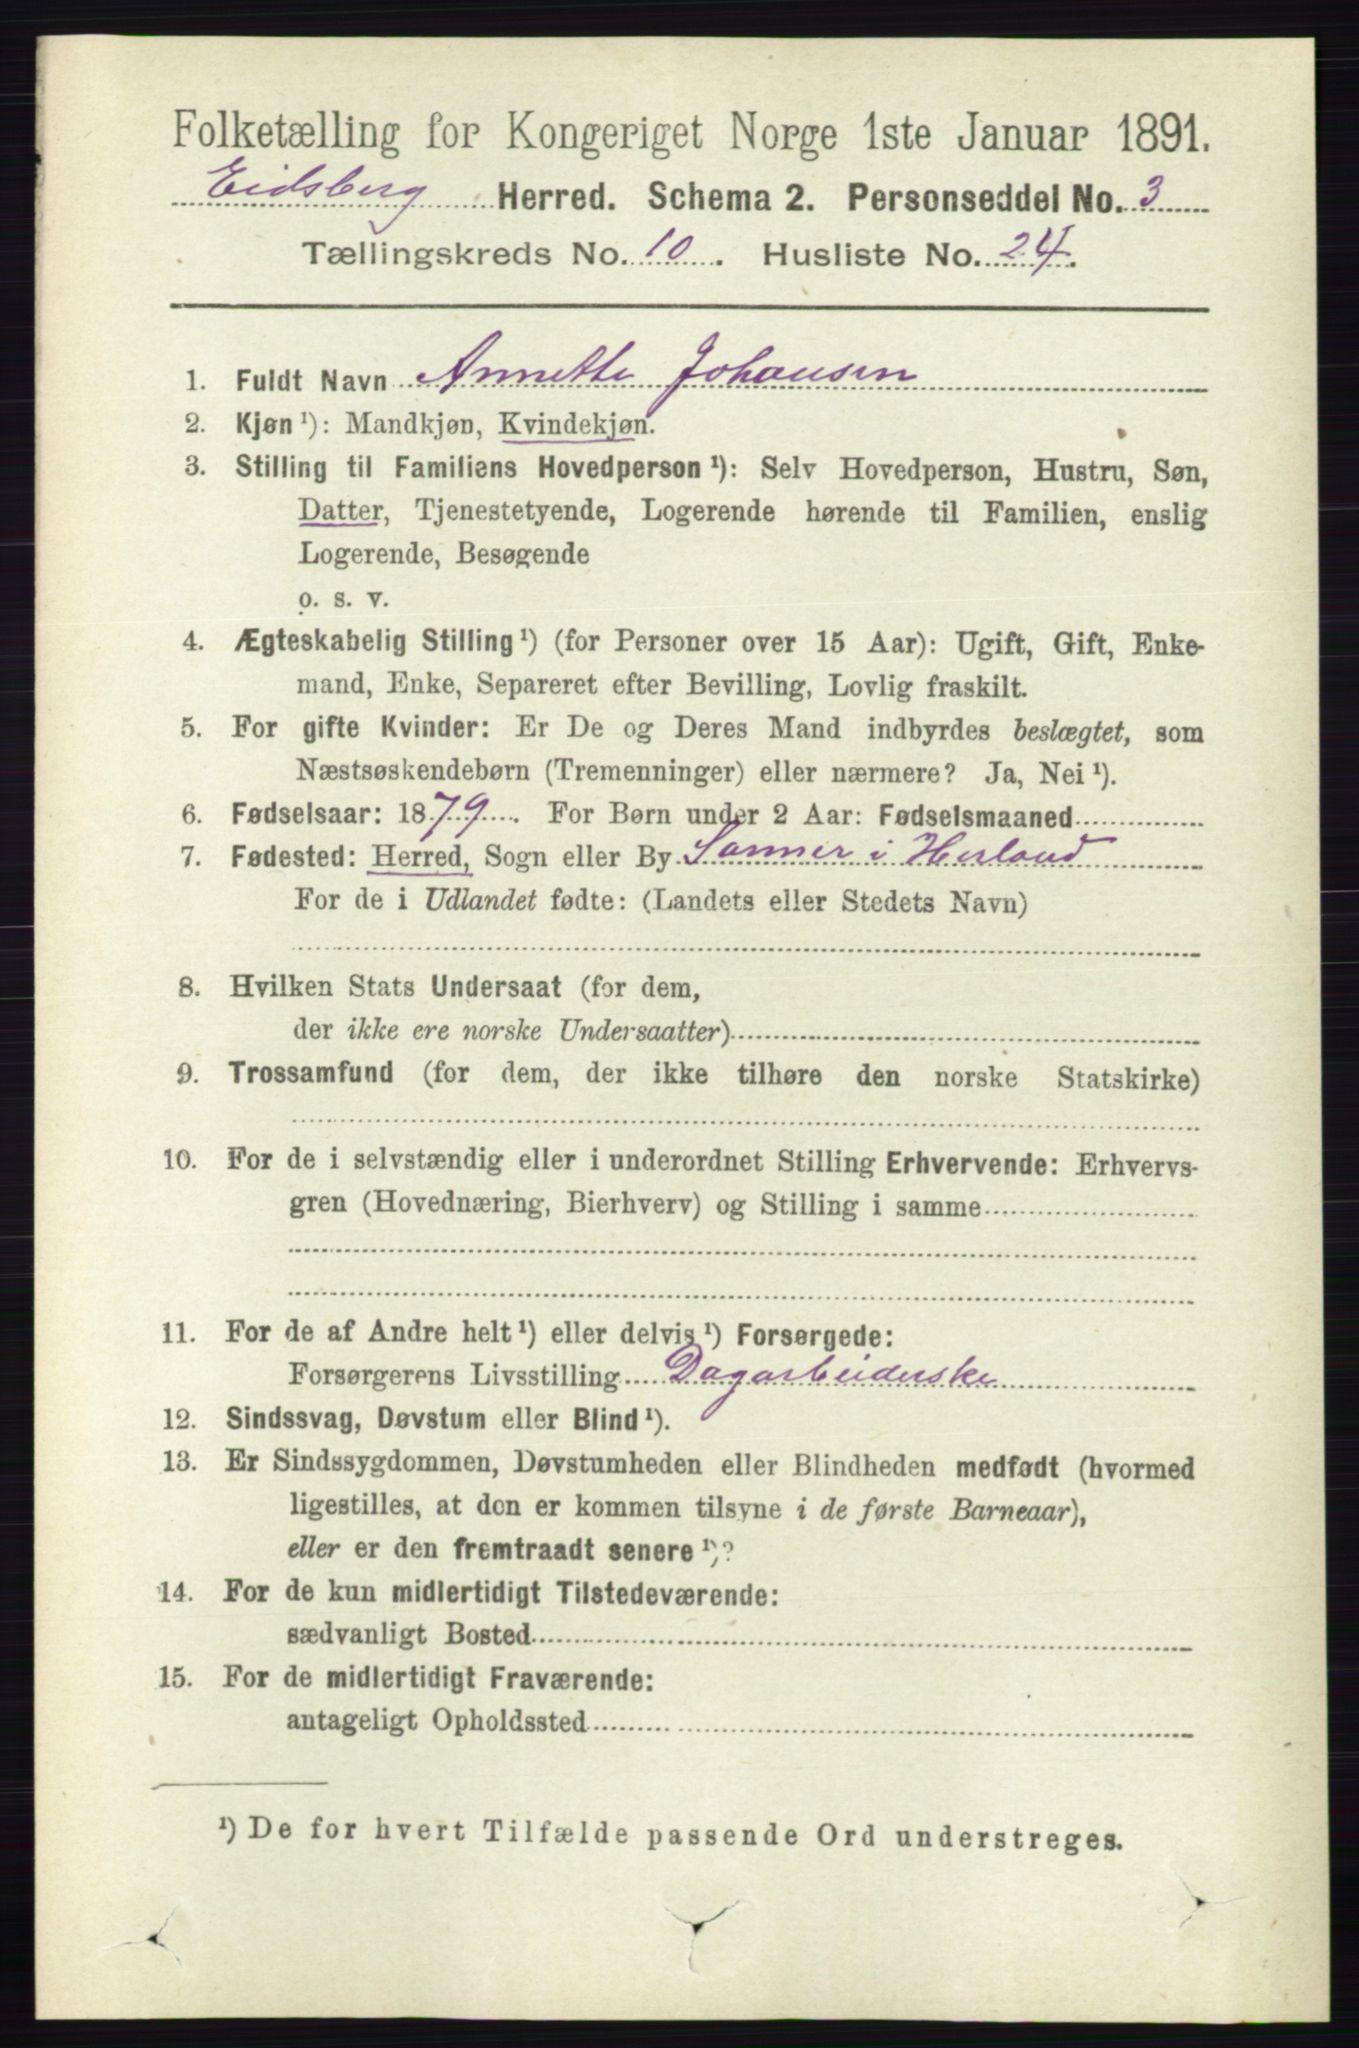 Folketælling for Kongeriget Norge 1ste Januar 1891.
Eidsberg Herred. Schema 2. Personseddel No. 3
Tællingskreds No. 10. Husliste No. 24.
1. Fuldt Navn Annette Johansen
2. Kjøn ¹): Mandkjøn, Kvindekjøn.
3. Stilling til Familiens Hovedperson ¹): Selv Hovedperson, Hustru, Søn,
Datter, Tjenestetyende, Logerende hørende til Familien, enslig
Logerende, Besøgende
o. s. v.
4. Ægteskabelig Stilling ¹) (for Personer over 15 Aar): Ugift, Gift, Enke-
mand, Enke, Separeret efter Bevilling, Lovlig fraskilt.
5. For gifte Kvinder: Er De og Deres Mand indbyrdes beslægtet, som
Næstsøskendebørn (Tremenninger) eller nærmere? Ja, Nei ¹).
6. Fødselsaar: 1879. For Børn under 2 Aar: Fødselsmaaned
7. Fødested: Herred, Sogn eller By i Herland
For de i Udlandet fødte: (Landets eller Stedets Navn)
8. Hvilken Stats Undersaat (for dem,
der ikke ere norske Undersaatter)
9. Trossamfund (for dem, der ikke tilhøre den norske Statskirke)
10. For de i selvstændig eller i underordnet Stilling Erhvervende: Erhvervs-
gren (Hovednæring, Bierhverv) og Stilling i samme
11. For de af Andre helt ¹) eller delvis ¹) Forsørgede:
Forsørgerens Livsstilling Dagarbeiderske
12. Sindssvag, Døvstum eller Blind ¹).
13. Er Sindssygdommen, Døvstumheden eller Blindheden medfødt (hvormed
ligestilles, at den er kommen tilsyne i de første Barneaar),
eller er den fremtraadt senere ¹)?
14. For de kun midlertidigt Tilstedeværende:
sædvanligt Bosted
15. For de midlertidigt Fraværende:
antageligt Opholdssted
¹) De for hvert Tilfælde passende Ord understreges.